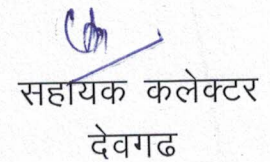 सहायक कलेक्टर
देवगढ